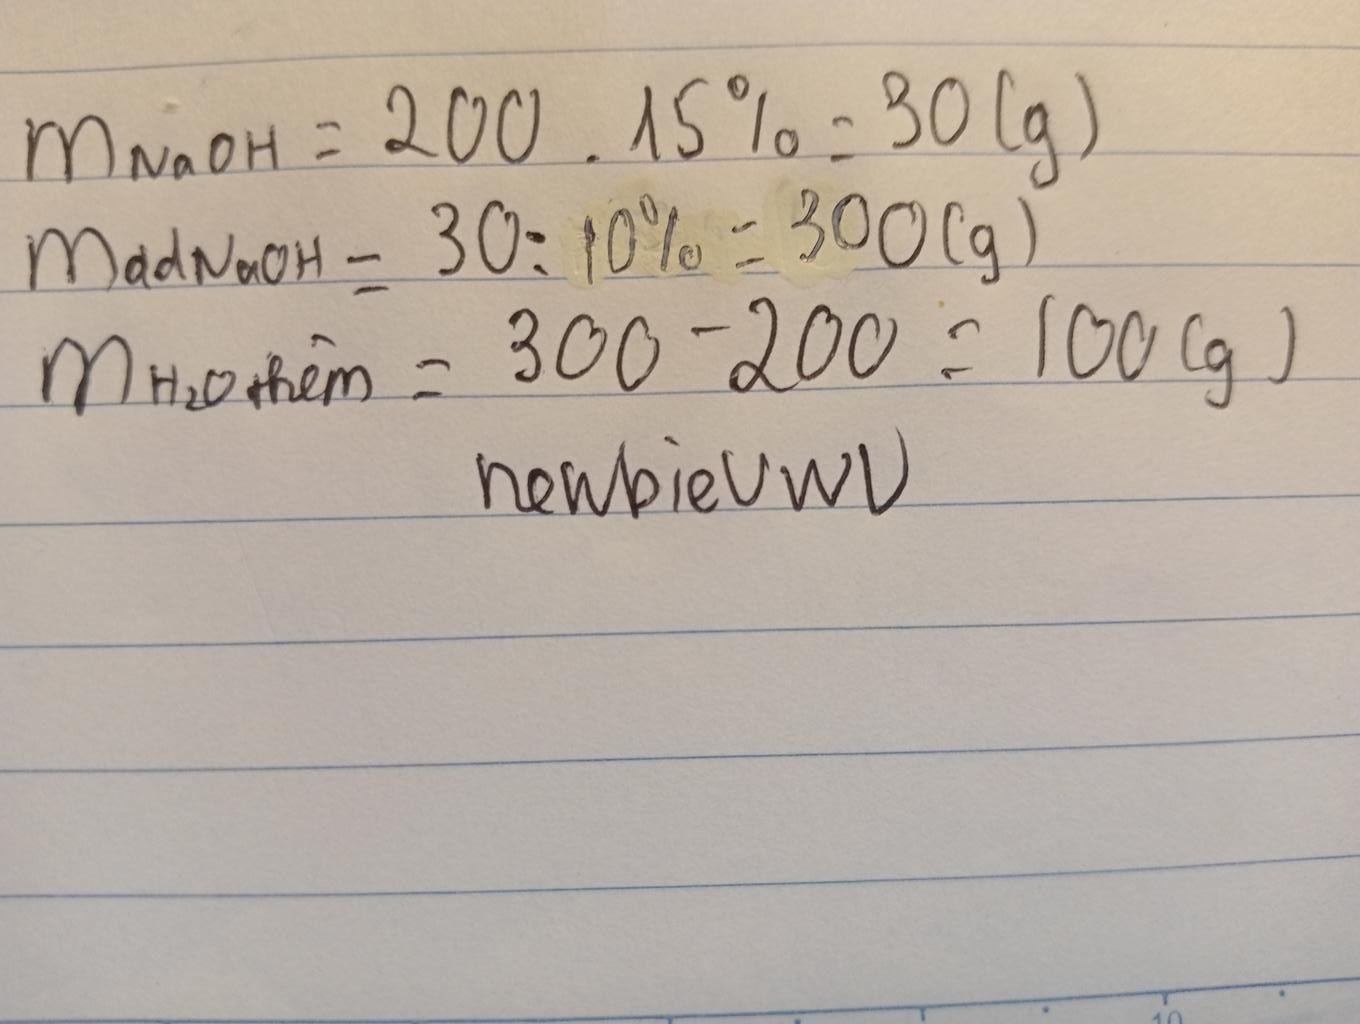 mNaOH = 200 . 15% = 30 (g)
mddNaOH = 30 : 10% = 300 (g)
mH₂O thêm = 300 - 200 = 100 (g)
newbieUwU
10